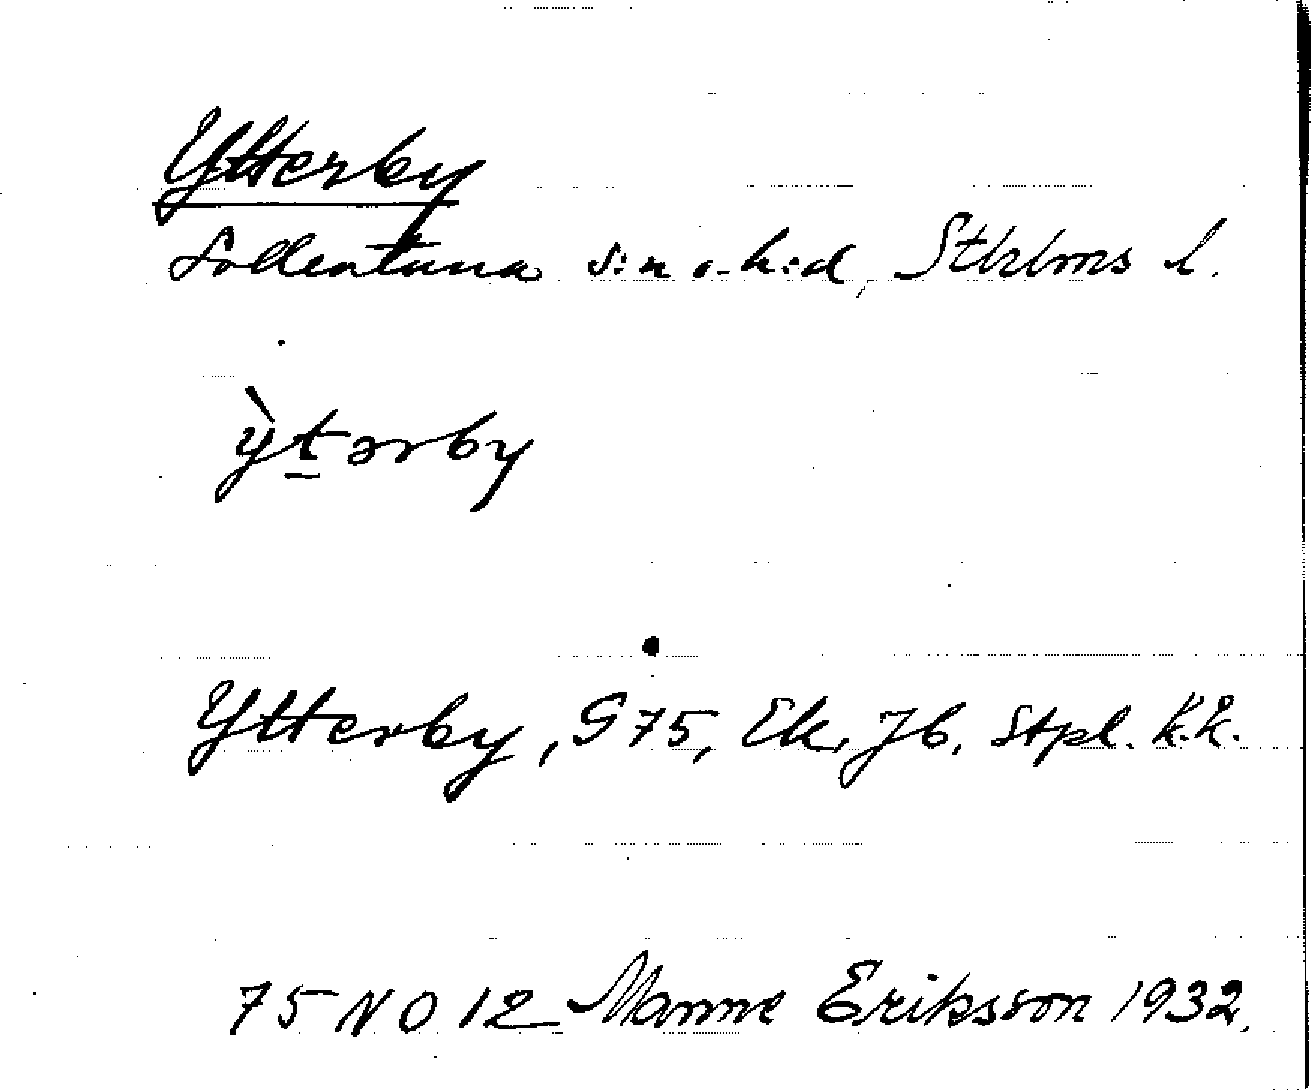 Ytterby
Sollentuna s:n o. h:d, Sthlms l.
ỳt̲ərby
Ytterby, G 75, Ek, Jb, Stpl. K.k.
75 NO 12 Manne Eriksson 1932.